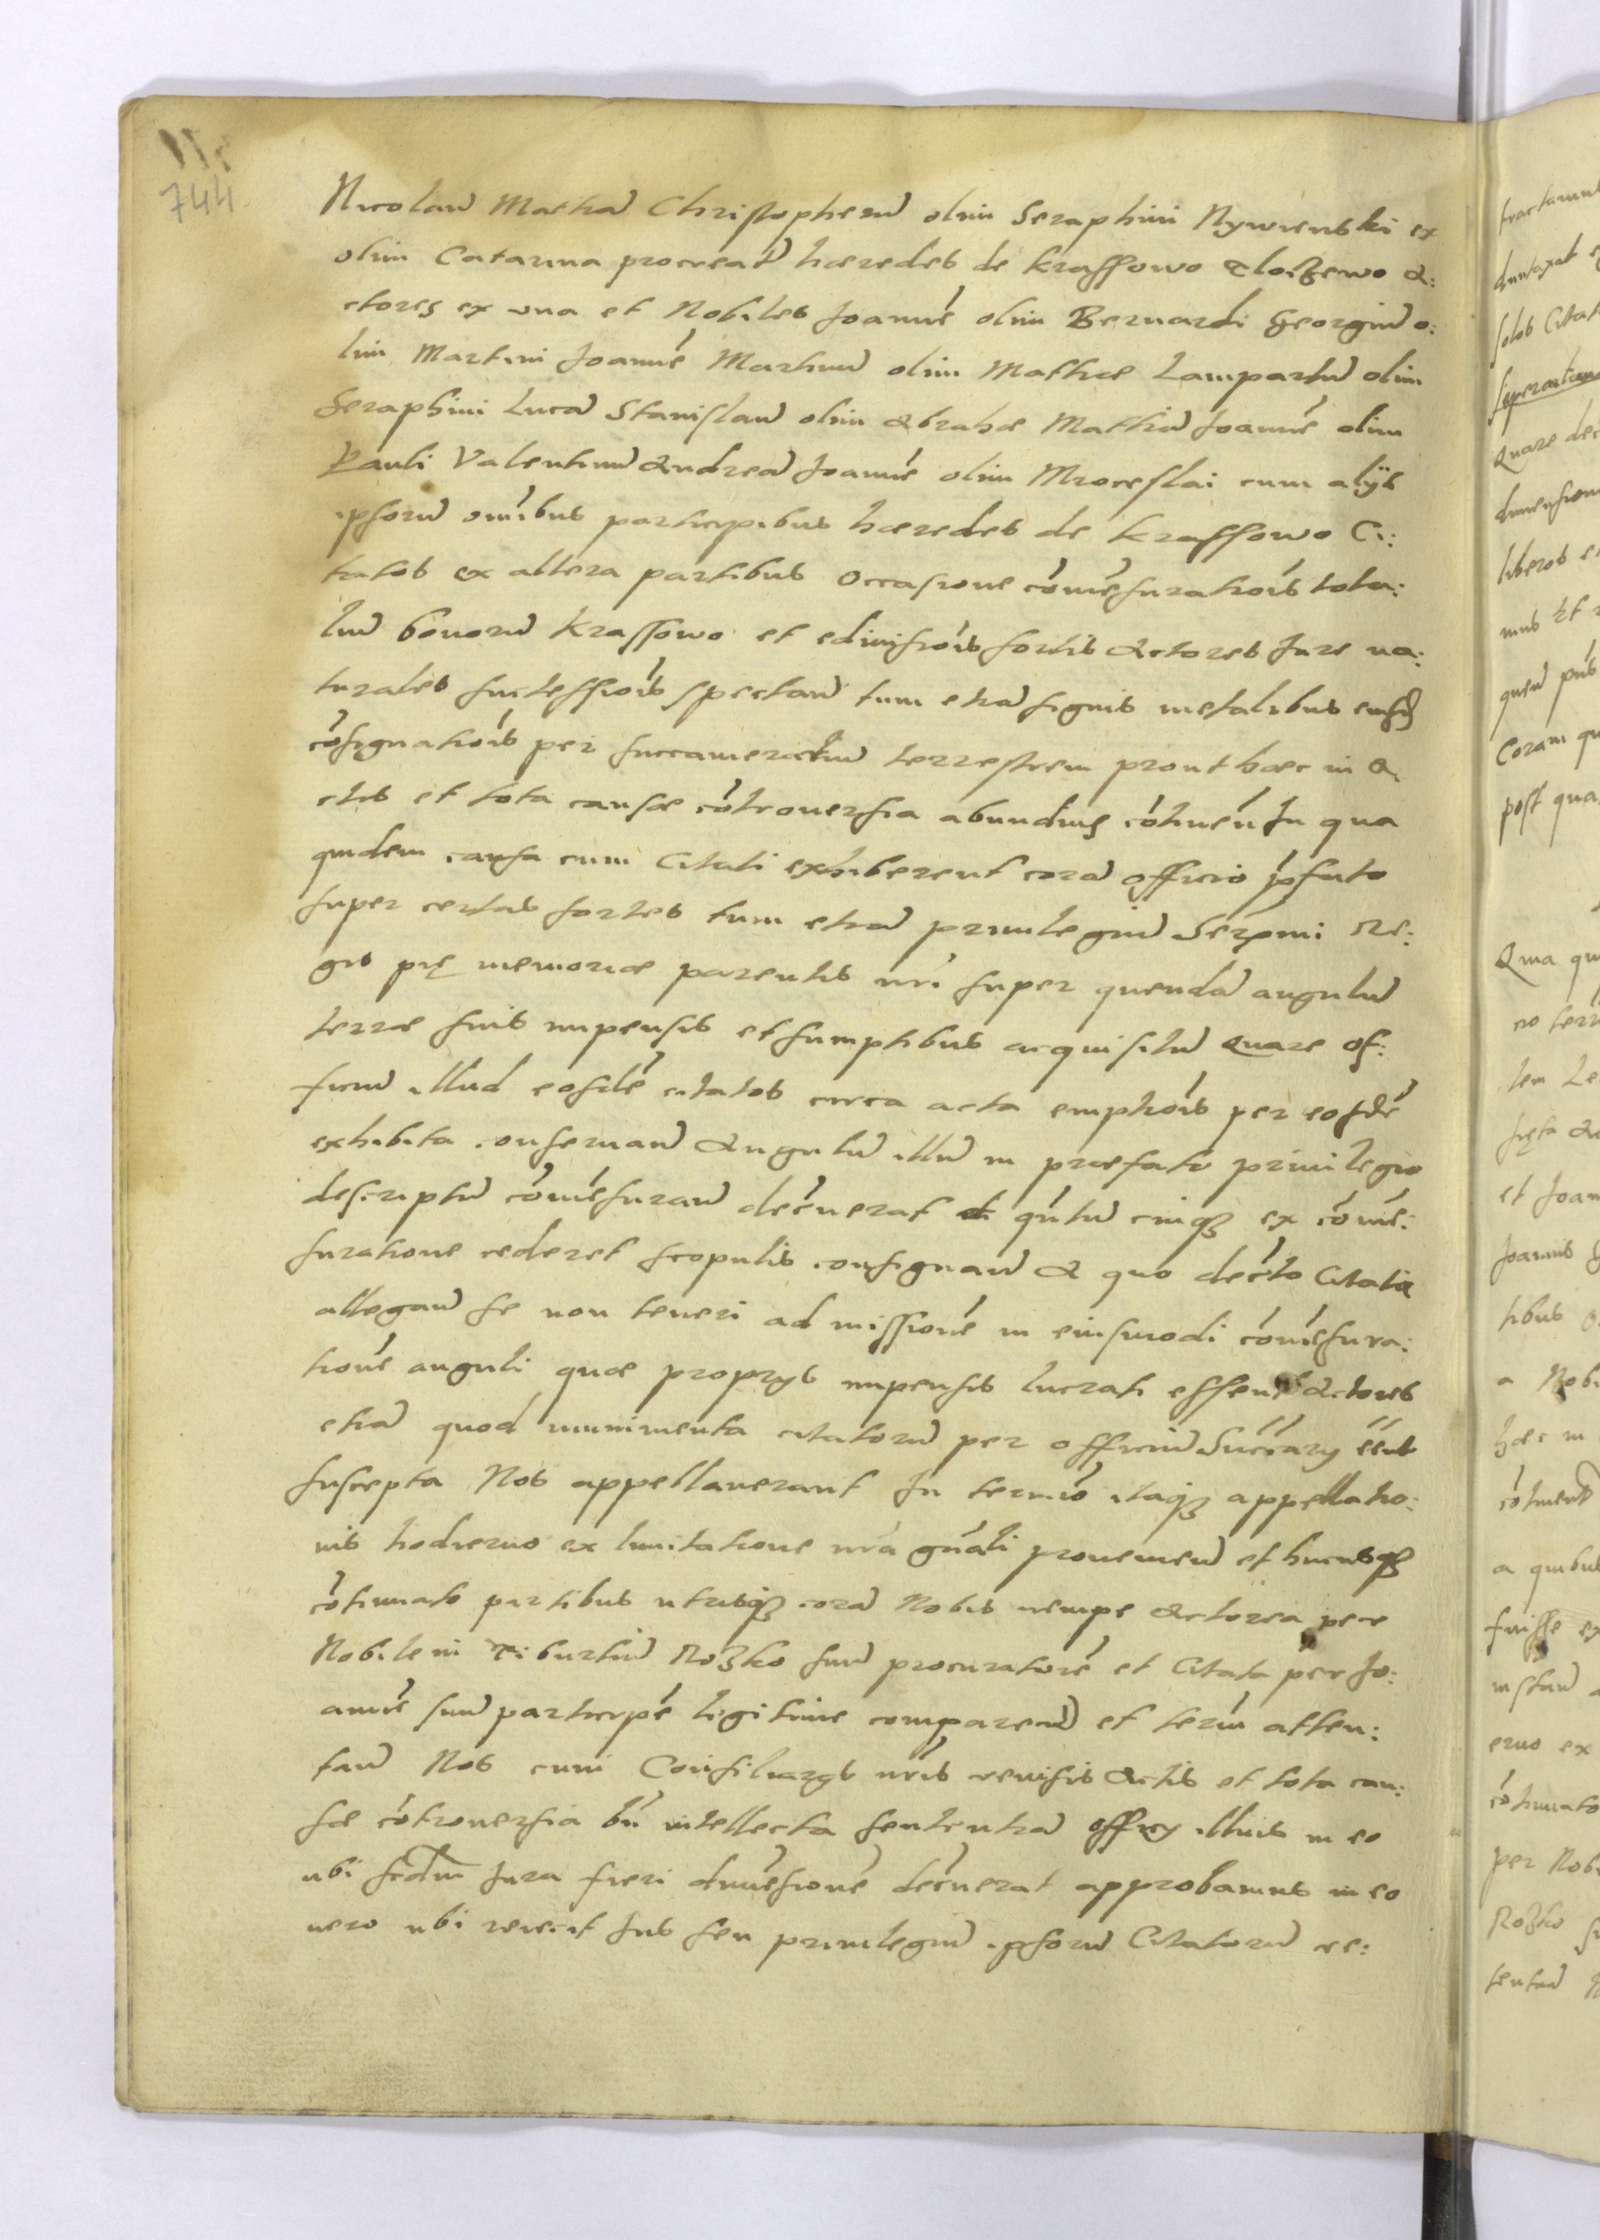 744
Nicolaum Mathiam Christopherum olim Seraphini Nywienski ex
olim Catarina procreatum hæredes de Krassowo Clozewo A:
ctores ex una et Nobiles Joannē olim Bernardi Georgium o:
lim Martini Joannē Martinum olim Mathiæ Lampartum olim
Seraphini Lucam Stanislaum olim Abrahæ Mathiam Joannē olim
Pauli Valentinum Andream Joannē olim Mroceslai cum alijs
ipsorum omībus participibus hæredes de Krassowo Ci:
tatos ex altera partibus Occasione cōmēsurationis tota:
lium bonorum Krassowo et edivisiōis sortis Actores Jure na:
turales successiōis spectan tum etiam signis metalibus eiusdem
cōsignatiōis per succamerarium terrestrem prout hæc in A
ctis et tota causæ cōtroversia abundius cōtinen In qua
quidem causa cum Citati exhiberent coram officio
super certas sortes tum etiam privilegium Serēmi Re:
gis pię memoriæ parentis nri super quendam angulum
terræ suis impensis et sumptibus acquisitum Quare of:
ficium illud eosdē citatos circa acta emptiōis per eosdē
exhibita conservan Angulum illum in præfato privilegio
descriptum cōmēsuran decreverat et quantum cuiq3 ex cōmē:
suratione cederet scopulis consignan A quo decreto Citati
allegan se non teneri ad missionē in eiusmodi cōmēsura:
tionē anguli quæ proprys impensis lucrati essent Actores
etiam quod munimenta citatorum per officium Succāry eent
suscepta Nos appellaverant In termīo itaq3 appellatio:
nis hodierno ex limitatione nrā gnāli provenien et hucusq3
cōtinuato partibus utrisq3 coram Nobis nempe Actorea per
Nobilem Tiburtium Rozko suum procuratorē et Citata per Jo:
annē suum participē legitime comparen et termīn atten:
tan Nos cum Consiliarys nris revisis Actis et tota cau:
sæ cōtroversia bn intellecta sententiam officy illius in eo
ubi scdm Jura fieri dimēsionē decreverat approbamus in eo
vero ubi reiecit Jus seu privilegium ipsorum Citatorum re: